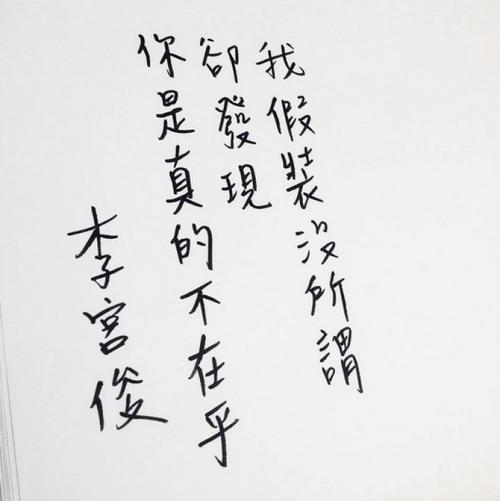 我假裝沒所謂
卻發現
你是真的不在乎
李宮俊